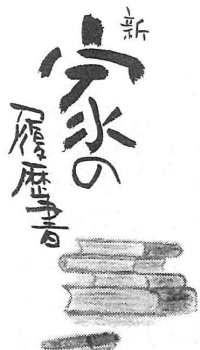 新
家の
履歴書